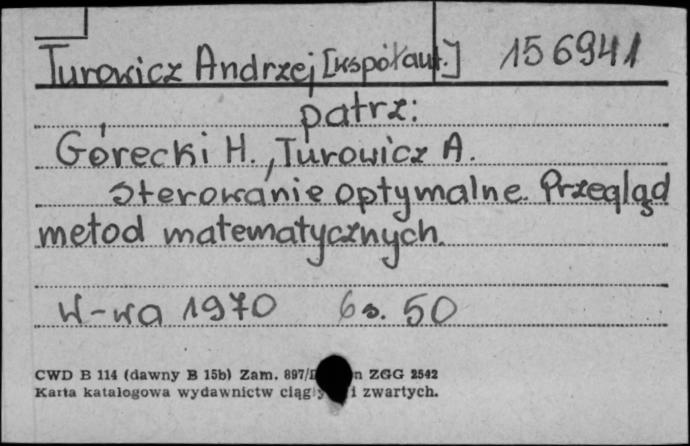 Turowicz Andrzej [współaut.] 156941
patrz:
Górecki H., Turowicz A.
Sterowanie optymalne. Przegląd
metod matematycznych.
W-wa 1970 6 s. 50
CWD B 114 (dawny B 15b) Zam. 897/ ZGG 2542
Karta katalogowa wydawnictw i zwartych.